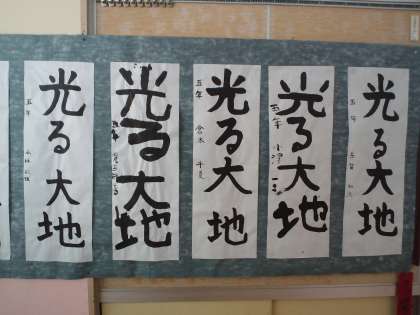 光る大地
五年
光る大地
五年
光る大地
五年
光る大地
五年
光る大地
五年